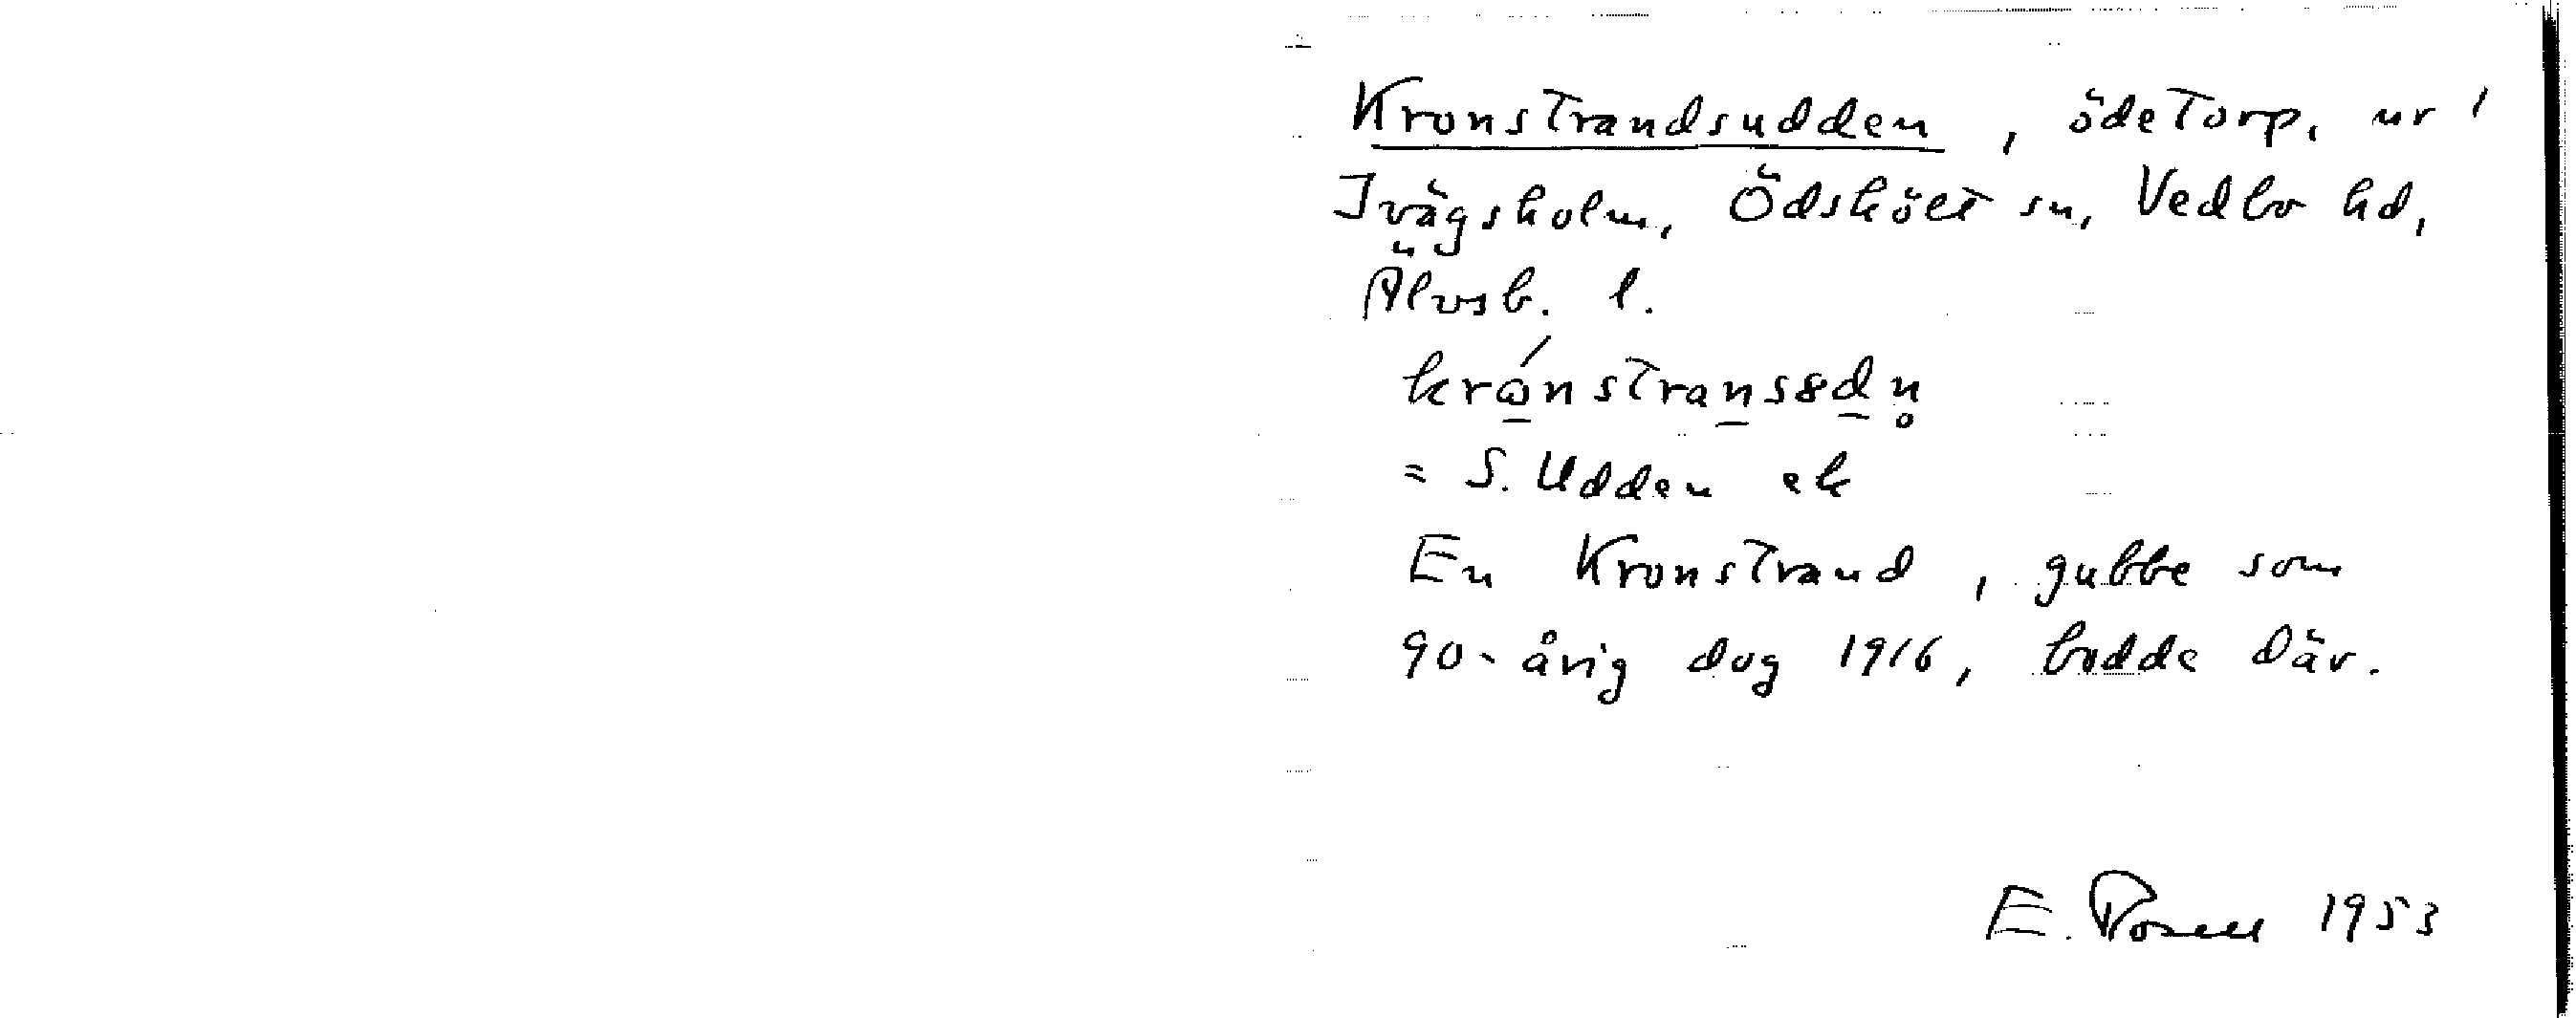 Kronstrandsudden, ödetorp, ur
Ivägsholm, Ödskölt sn, Vedbo hd,
Älvsb. l.
krǻnstransȣdn̥
= S. Udden ek
En Kronstrand, gubbe som
90-årig dog 1916, bodde där.
E. Rosell 1953